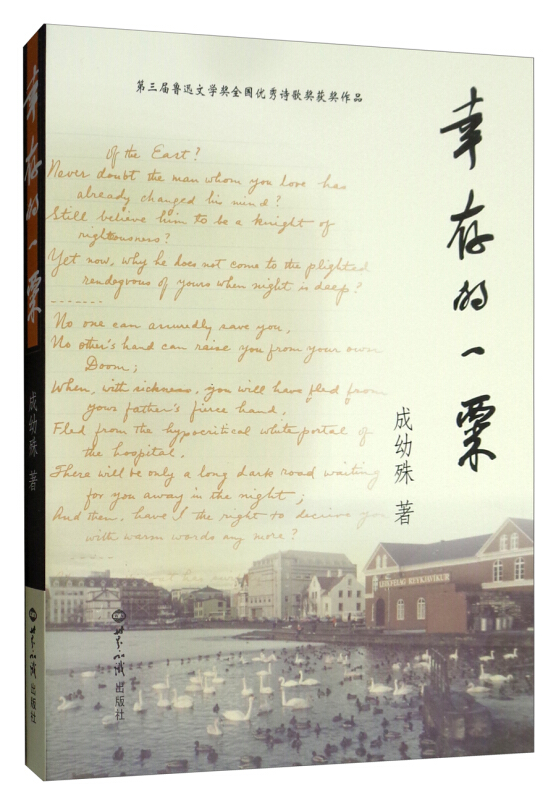 第三届鲁迅文学奖全国优秀诗歌奖获奖作品
幸存的一粟
成幼殊 著
Of the East?
Never doubt the man whom you love has
already changed his mind?
Still believe him to be a knight of
righteousness?
Yet now, why he does not come to the plighted
rendezvous of yours when night is deep?
------
No one can assuredly save you,
No other's hand can raise you from your own
Doom;
When, with sickness, you will have fled from
your father's fierce hand,
Fled from the hypocritical white portal of
the hospital,
There will be only a long dark road waiting
for you away in the night;
And then, have I the right to deceive you
with warm words any more?
世界知识出版社
幸存的一粟
成幼殊 著
世界知识出版社